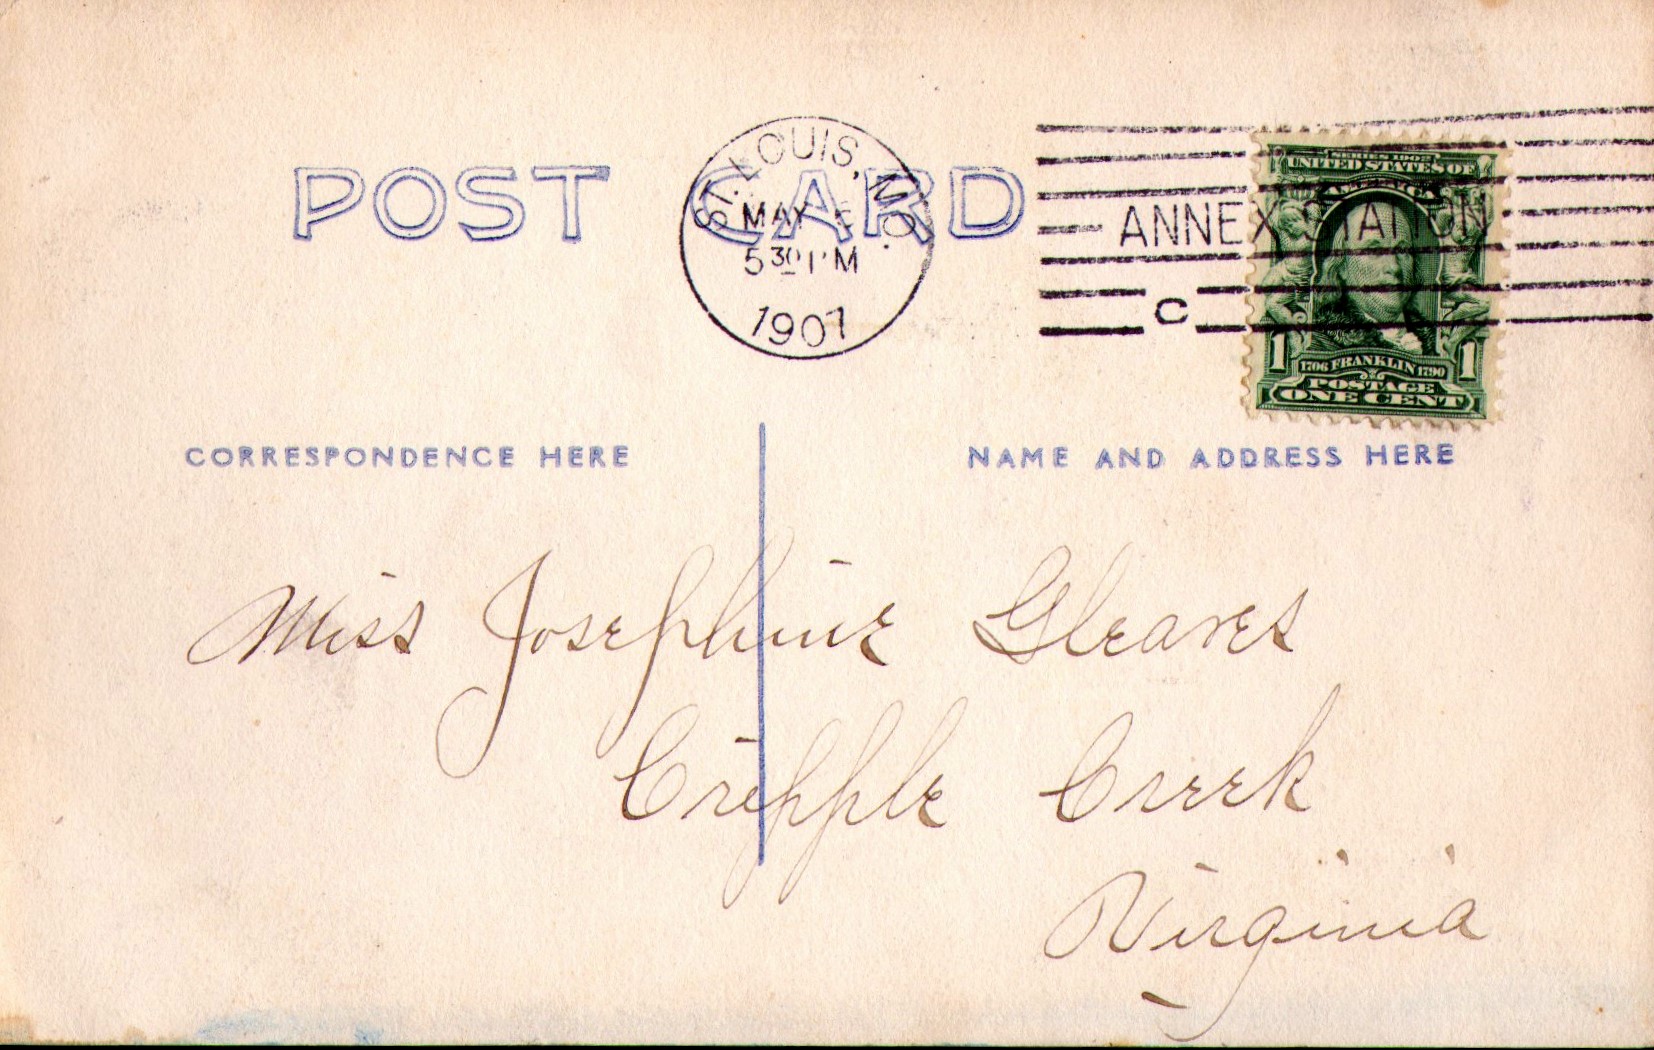 POST CARD
ST. LOUIS, MO.
MAY
5 30 PM
1907
ANNEX STATION
C
SERIES 1902
UNITED STATES OF
AMERICA
1 1706 FRANKLIN 1790 1
POSTAGE
ONE CENT
CORRESPONDENCE HERE
NAME AND ADDRESS HERE
Miss Josephine Gleaves
Cripple Creek
Virginia